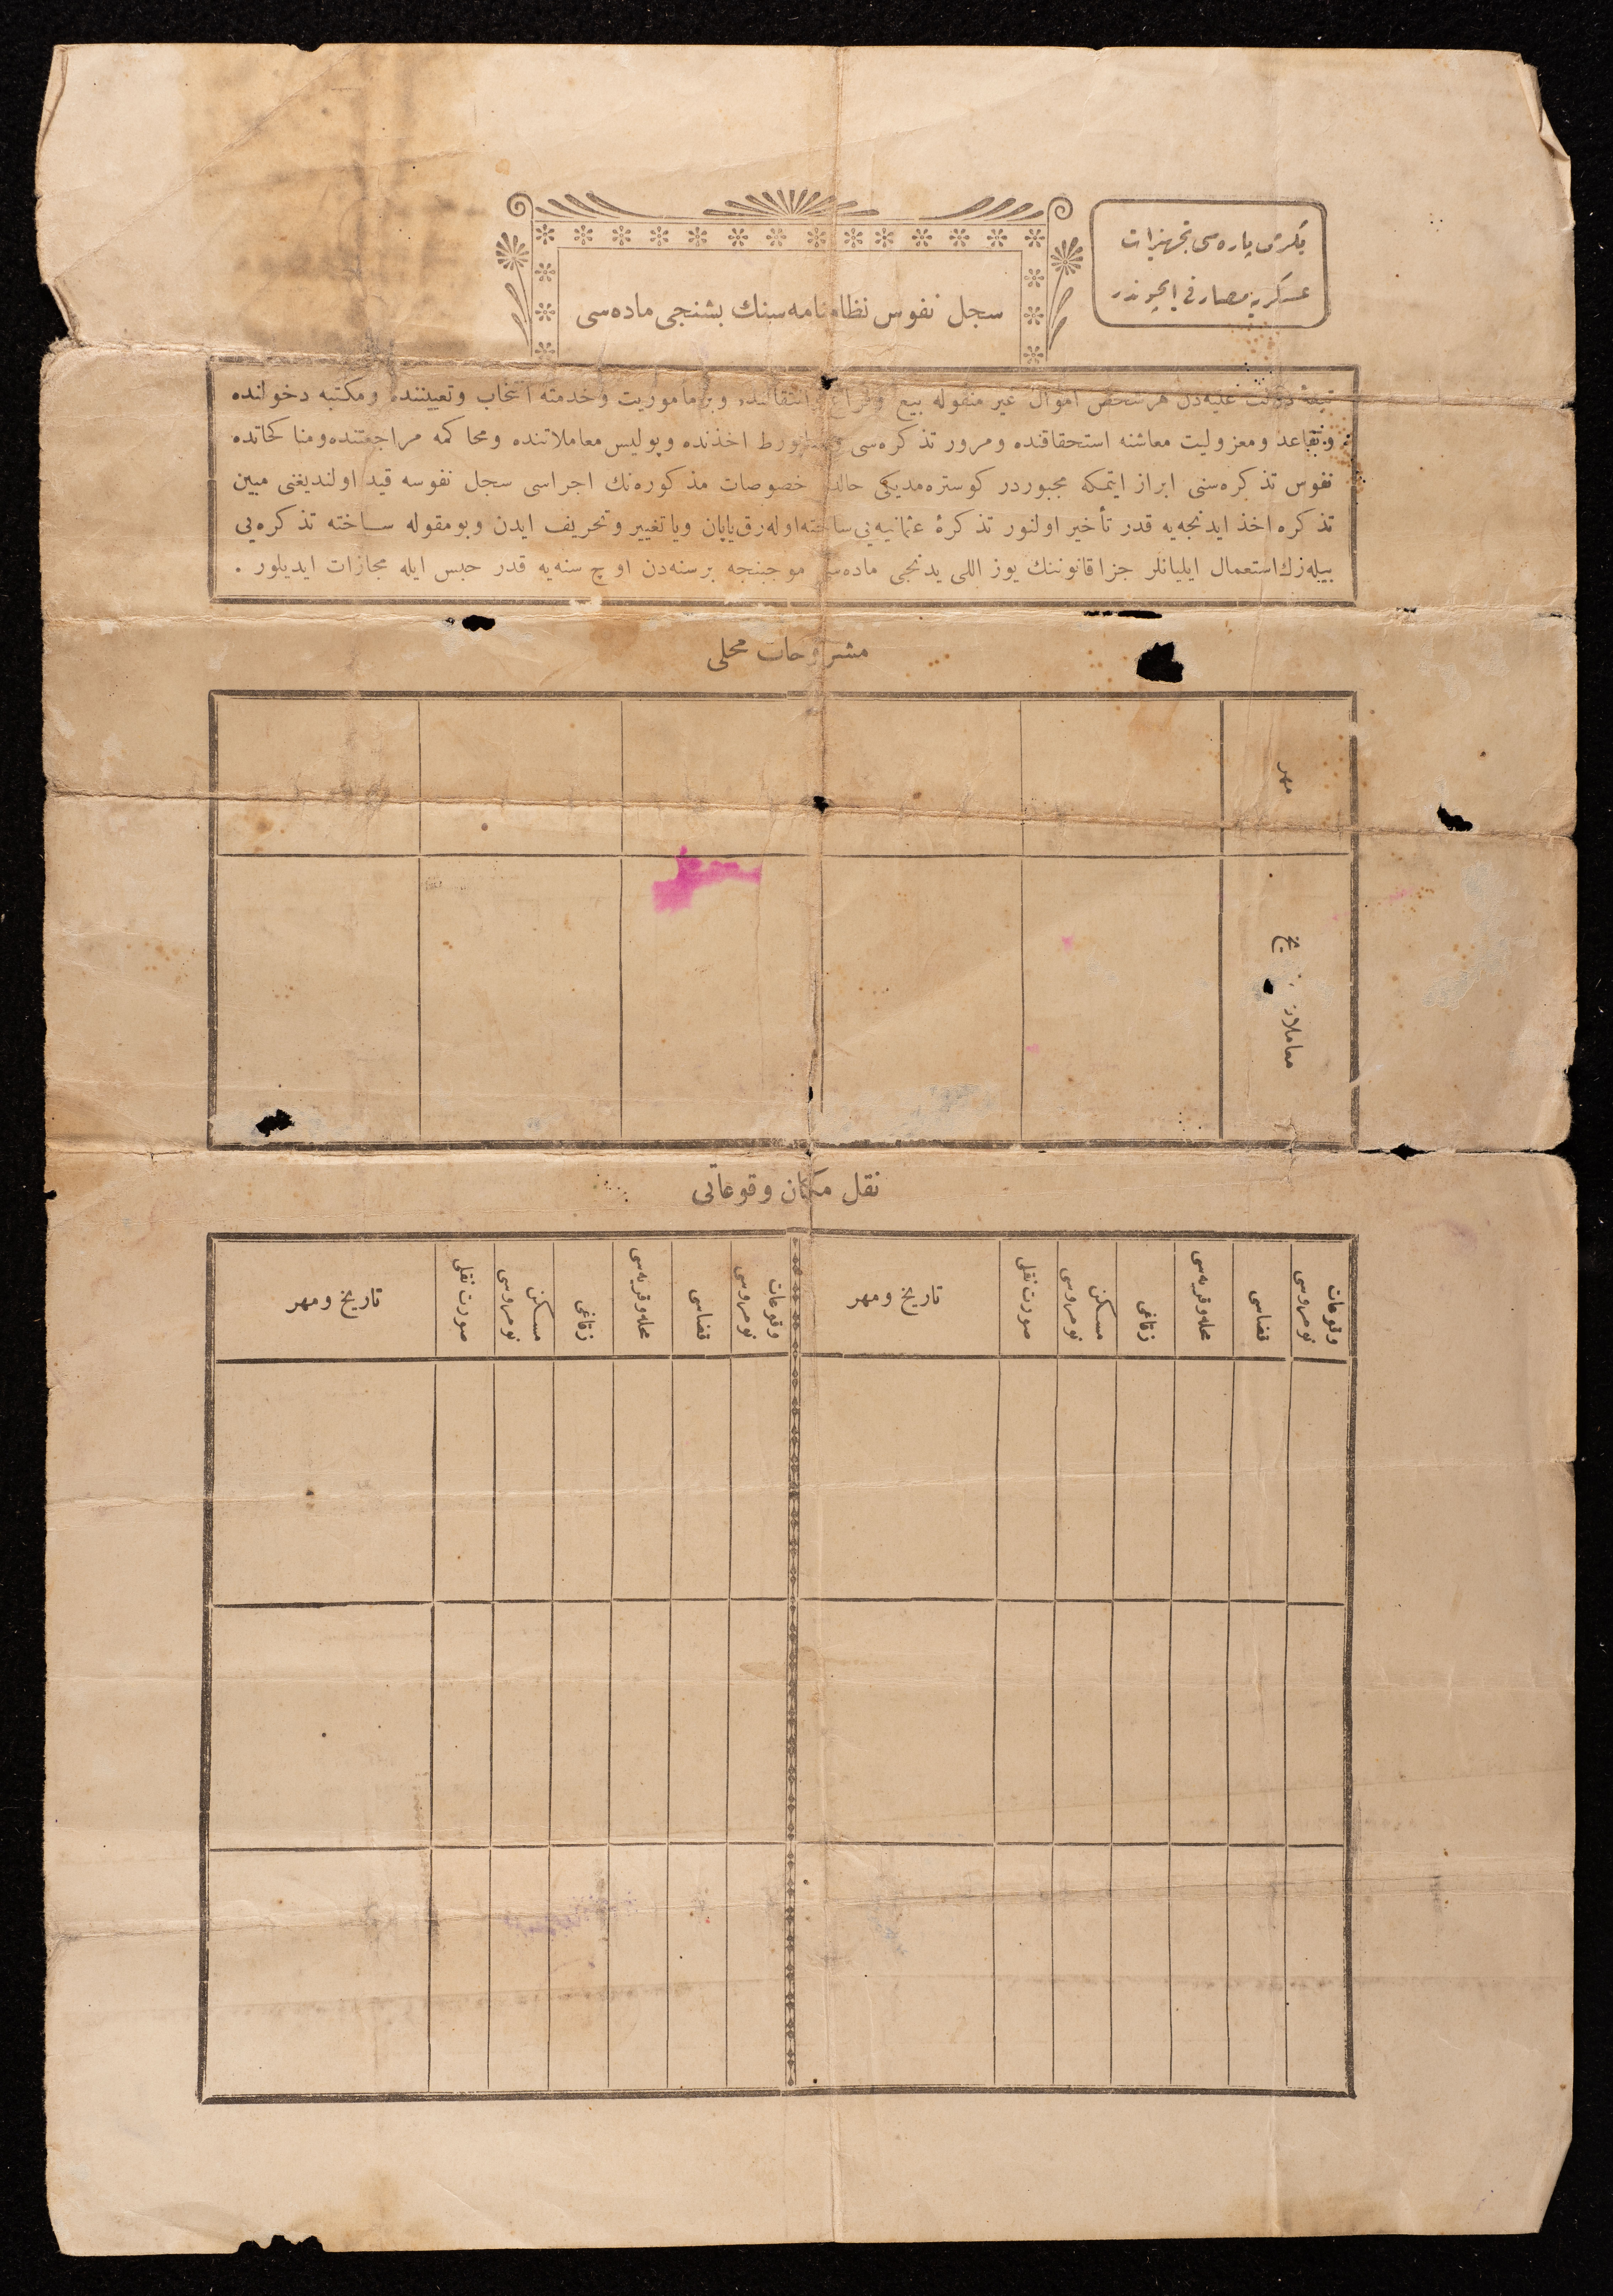 یکرمی پاره‌سی تجهیزات
عسکریه مصارفی ایچوندر
سجل نفوس نظامنامه‌سنك بشنجی ماده‌سی
تبعهٔ دولت علیه‌دن هر شخص اموال غیر منقوله بیع وفراغ وانتقالنده وبر مأموریت وخدمته انتخاب وتعییننده ومکتبه دخولنده
وتقاعد ومعزولیت معاشنه استحقاقنده ومرور تذکره‌سی وپاسپورط اخذنده وپولیس معاملاتنده ومحاکمه مراجعتنده ومناکحاتده
نفوس تذکره‌سنی ابراز ایتمکه مجبوردر کوستره‌مدیکی حالده خصوصات مذکوره‌نك اجراسی سجل نفوسه قید اولندیغنی مبین
تذکره اخذ ایدنجه‌یه قدر تأخیر اولنور تذکرهٔ عثمانیه‌یی ساخته اوله‌رق یاپان ویا تغییر وتحریف ایدن وبومقوله ساخته تذکره‌یی
بیله‌رك استعمال ایلیانلر جزا قانوننك یوز اللی یدنجی ماده‌سی موجبنجه بر سنه‌دن اوچ سنه‌یه قدر حبس ایله مجازات ایدیلور .
مشروحات محلی
مهر
معاملات
نقل مکان وقوعاتی
وقوعات نومروسی
قضاسی
محله وقریه‌سی
زقاغی
مسکن نومروسی
صورت نقلی
تاریخ ومهر
وقوعات نومروسی
قضاسی
محله وقریه‌سی
زقاغی
مسکن نومروسی
صورت نقلی
تاریخ ومهر